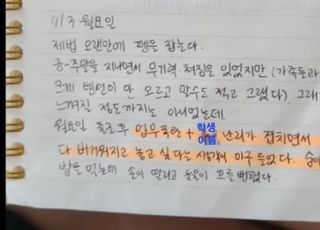 11/3 월요일
제법 오랜만에 펜을 잡는다.
금-주말을 지나면서 무기력 쳐짐은 있었지만 (가족들과
크게 텐션이 안 오르고 말수도 적고 그랬다). 그래
느껴질 정도까지는 아니었는데.
월요일 출근 후 업무폭탄 + 학생 이름 난리가 겹치면서
다 버거워지고 놓고 싶다는 생각이 마구 들었다. 숨이
밥을 먹는데 손이 떨리고 눈물이 흐를 뻔했다.